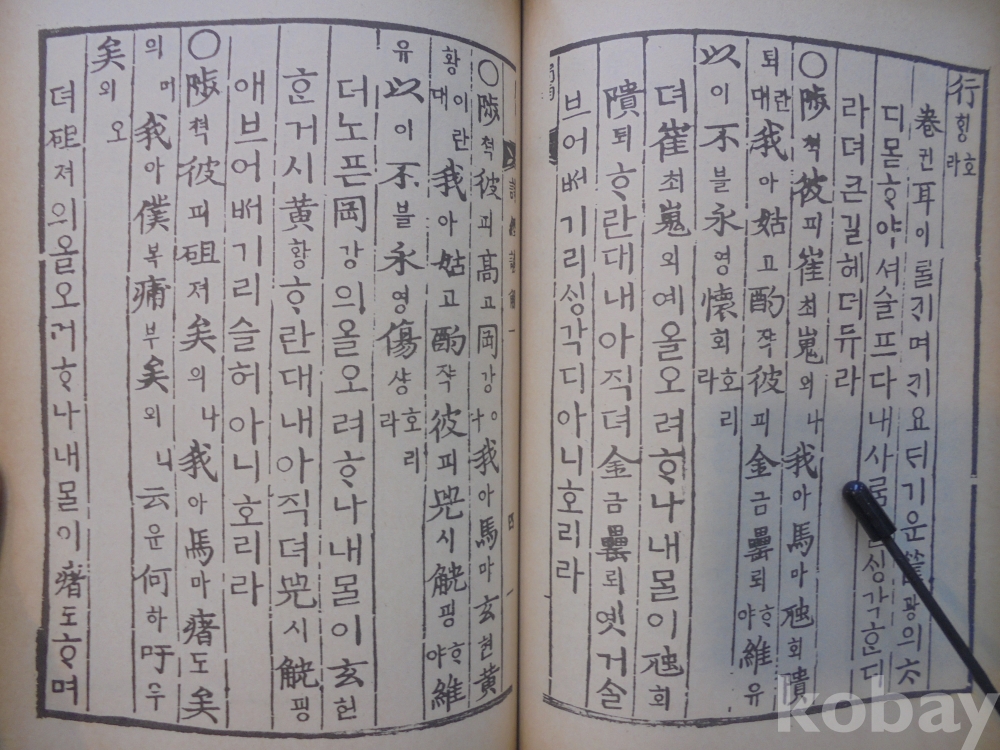 行힝호라
卷권耳이ᄅᆞᆯ키며키요ᄃᆡ기운筐광의ᄎᆞ
디몯ᄒᆞ야셔슬프다내사ᄅᆞᆷ ᄉᆡᆼ각ᄒᆞᆫ디
라뎌큰길헤더듀라
○陟쳑彼피崔최嵬외나我아馬마虺회隤
퇴란대我아姑고酌쟉彼피金금罍뢰ᄒᆞ야維유
以이不블永영懷회호리라
뎌崔최嵬외예올오려ᄒᆞ나내몰이虺회
隤퇴ᄒᆞ란대내아직뎌金금罍뢰옛거슬
브어ᄡᅥ기리싱각디아니호리라
詩經諺解一 四
○陟쳑彼피高고岡강ᄋᆞ나我아馬마玄현黃
황이란대我아姑고酌쟉彼피兕시觥핑ᄒᆞ야維
유以이不블永영傷샹호리라
더노픈岡강의올오려ᄒᆞ나내몰이玄현
ᄒᆞᆫ거시黃황ᄒᆞ란대내아직뎌兕시觥핑
애브어ᄡᅥ기리슬허아니호리라
○陟쳑彼피砠져矣의나我아馬마瘏도矣
의며我아僕복痡부矣의니云운何하吁우
矣의오
뎌砠져의올오려ᄒᆞ나내몰이瘏도ᄒᆞ며
kobay